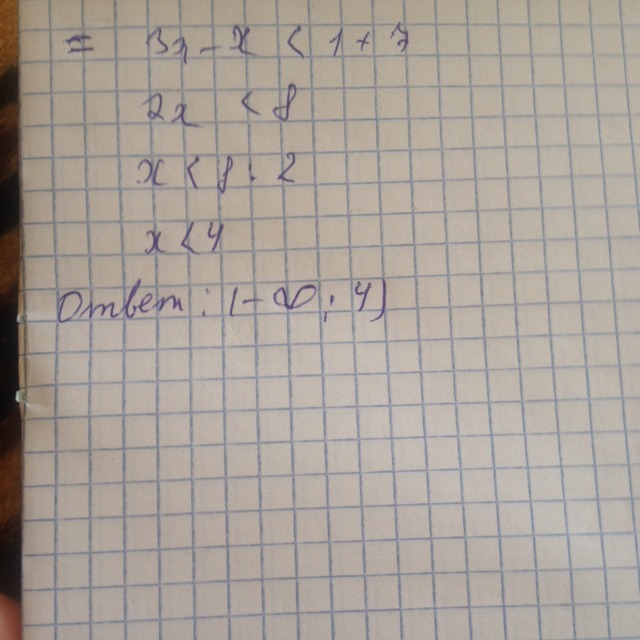 = 3x - x < 1 + 7
2x < 8
x < 8 : 2
x < 4
Ответ: (-∞; 4)